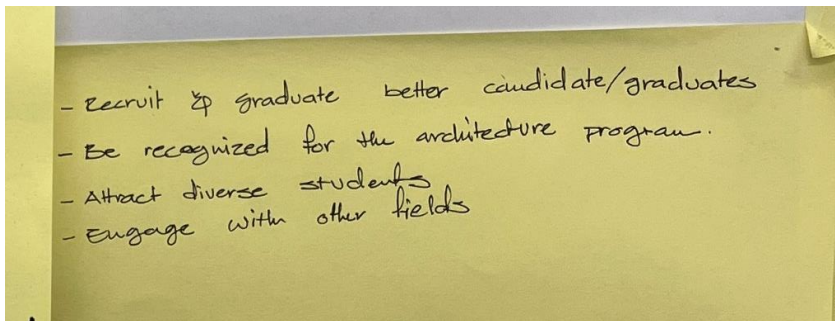 - Recruit & graduate better candidate/graduates
- Be recognized for the architecture program.
- Attract diverse students
- Engage with other fields